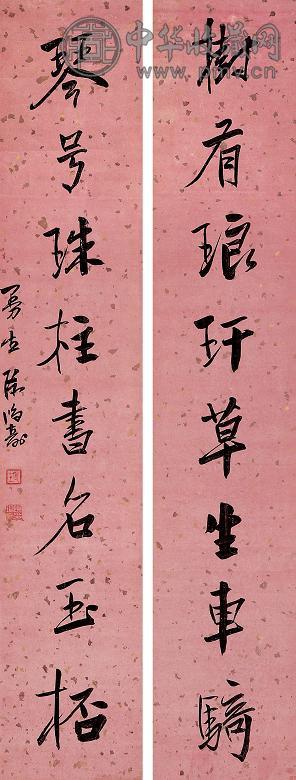 樹有琅玕草生車騎
琴号珠柱書名玉桮
曼生陳鴻壽
中华收藏网